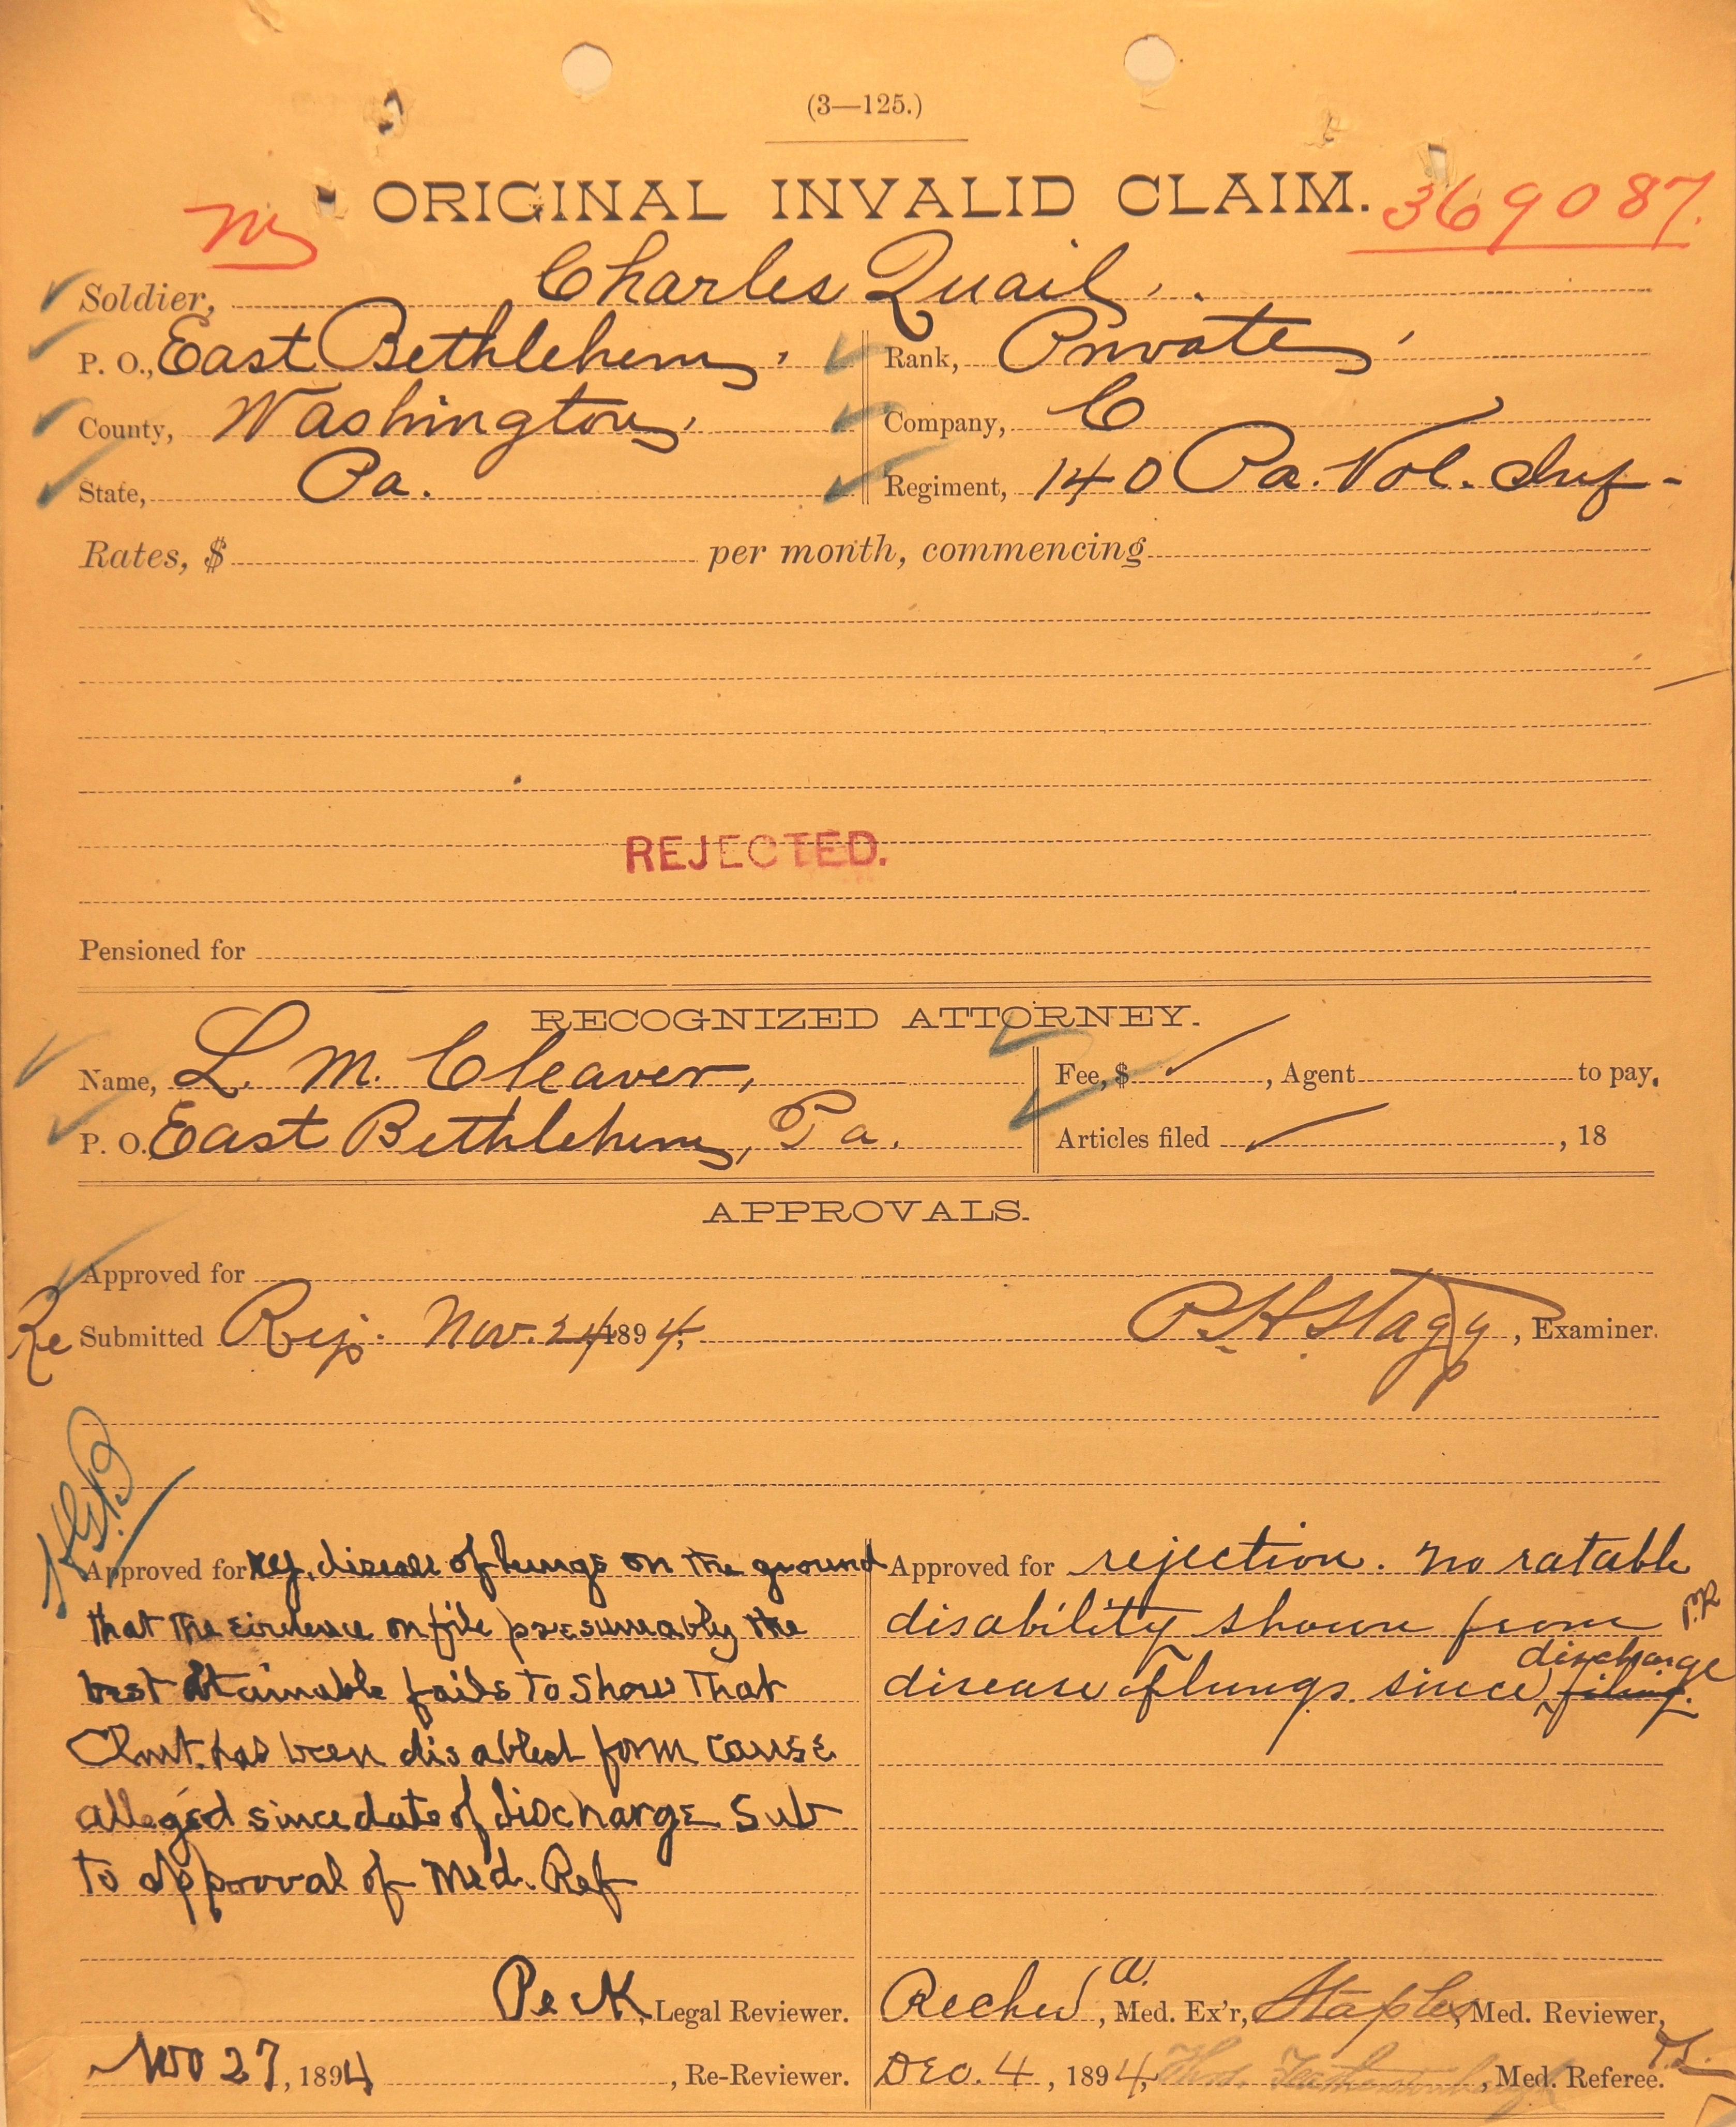 (3—125.)
ORIGINAL INVALID CLAIM. 369087.
Soldier, Charles Quail.
P. O., East Bethlehem, Rank, Private,
County, Washington, Company, C
State, Pa. Regiment, 140 Pa. Vol. Inf-
Rates, $ per month, commencing
REJECTED.
Pensioned for
RECOGNIZED ATTORNEY.
Name, L. M. Cleaver, Fee, $ , Agent to pay.
P. O. East Bethlehem, Pa. Articles filed , 18
APPROVALS.
Approved for
Re Submitted Rej. Nov. 24 1894, P. H. Stagg, Examiner.
Approved for rej. disease of lungs on the ground
that the evidence on file presumably the
best obtainable fails to show that
Clmt. has been disabled from cause
alleged since date of discharge Sub
to approval of Med. Ref
Peck, Legal Reviewer.
Nov 27, 1894 , Re-Reviewer.
Approved for rejection. No ratable
disability shown from
disease of lungs since discharge filing.
, Med. Ex'r, Staples, Med. Reviewer,
Dec. 4, 1894, , Med. Referee.